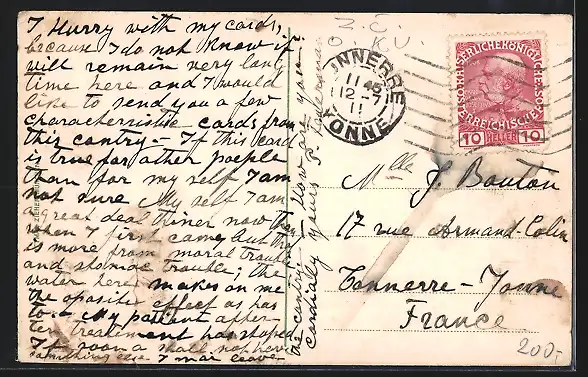 I Hurry with my cards,
because I do not know if I
will remain very long
time here and I would
like to send you a few
characterristic cards from
this cantry - If this card
is true for other poeple
than for my self I am
not sure My self I am
a great deal thiner now than
when I first came but this
is more from moral trouble
and stomac trouble; the
water here makes on me
the oposite effect as has
to. My patiant after
ten treatement has stoped
If soon a shall not have
something else I may leave
the cantry. How are you
cordially yours
Mlle J. Bouton
17 rue Armand Colin
Tonnerre - Yonne
France
TONNERRE
11 45
12 - 7
11
YONNE
10 HELLER 10
200.-